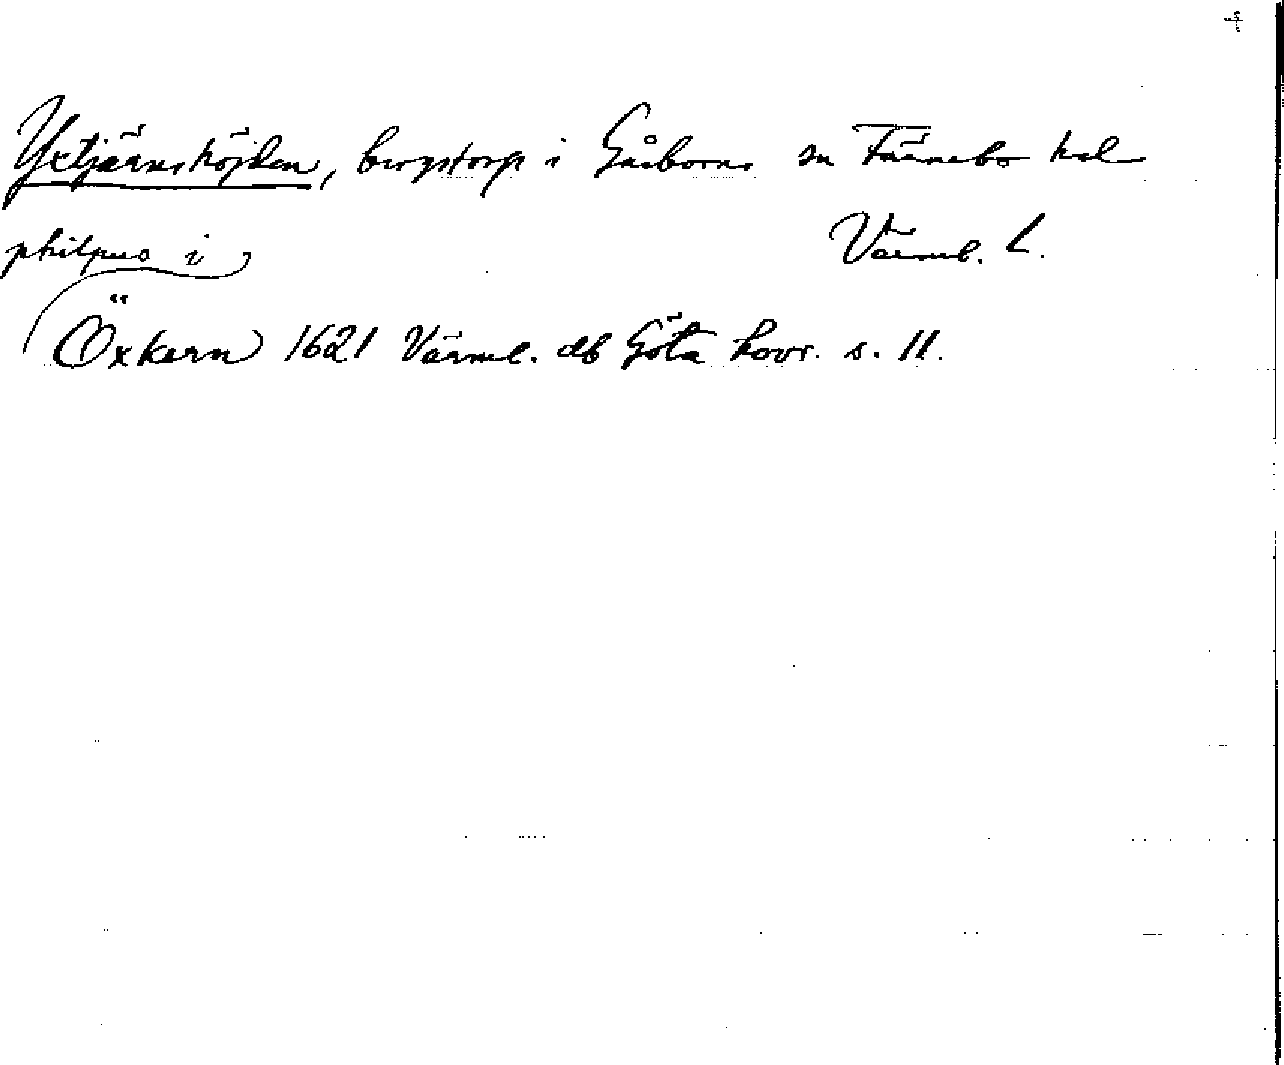 Yxtjärnshöjden, bergstorp i Gåsborns sn Färnebo hd
Värml. L.
philpus i
Öxkern 1621 Värml. db Göta hovr. s. 11.